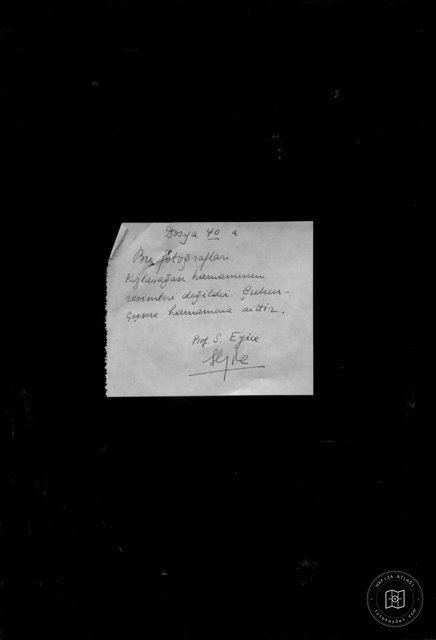 Dosya 40 a
Bu fotoğraflar
Kızlarağası hamamının
resimleri değildir. Çukur-
çeşme hamamına aittir.
Prof. S. Eyice
SEyice
HAFIZA ATLASI